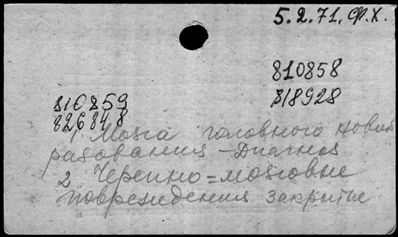 5.2.71. Ф.Х.
810858
818928
810859
826848
1 Мозга головного новоо
разования - Диагноз
2 Черепно=мозговые
повреждения закрытые